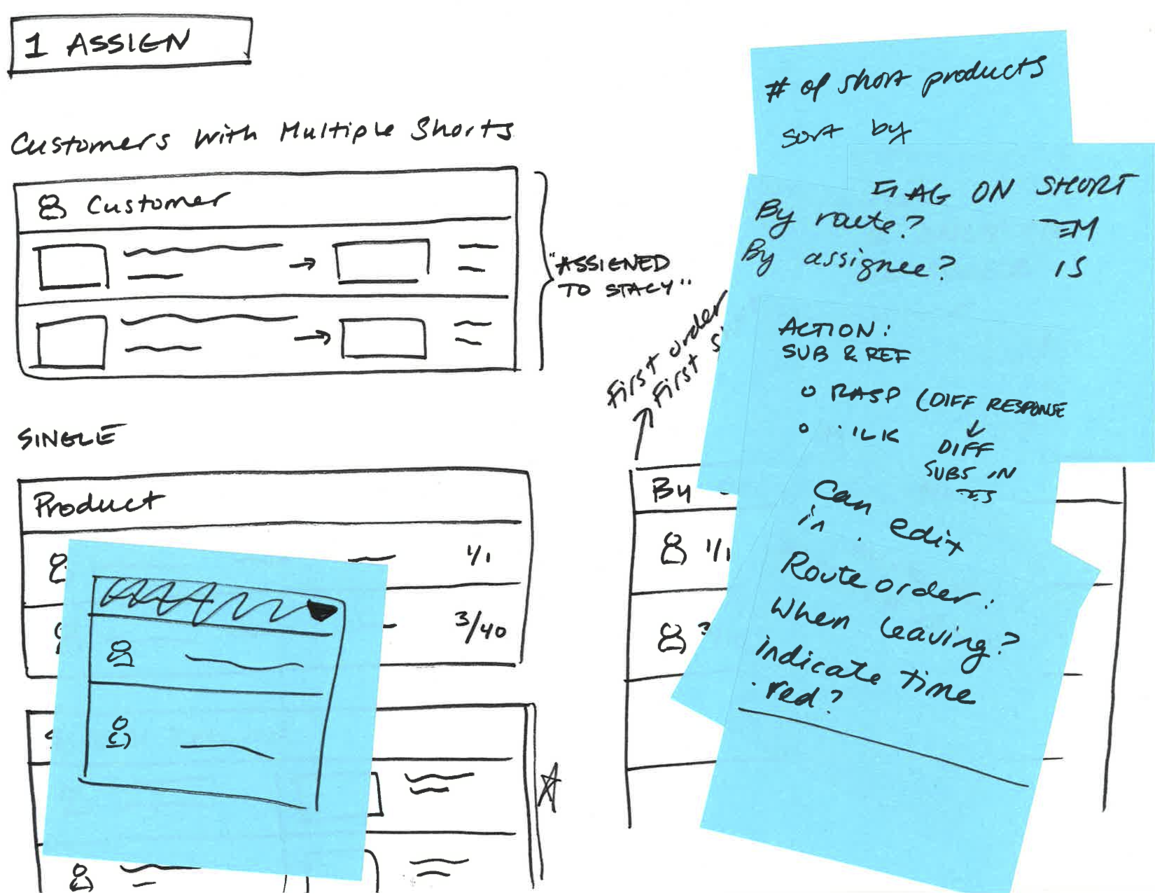 1 ASSIGN
Customers with Multiple Shorts
Customer
"ASSIGNED
TO STACY"
SINGLE
Product
1/1
3/40
First order
First
By
1/1
# of short products
sort by
FLAG ON SHORT
By route?
By assignee?
IS
ACTION:
SUB & REF
RASP (DIFF RESPONSE
DIFF
SUBS IN
Can edit
in
Route order:
When leaving?
indicate time
red?